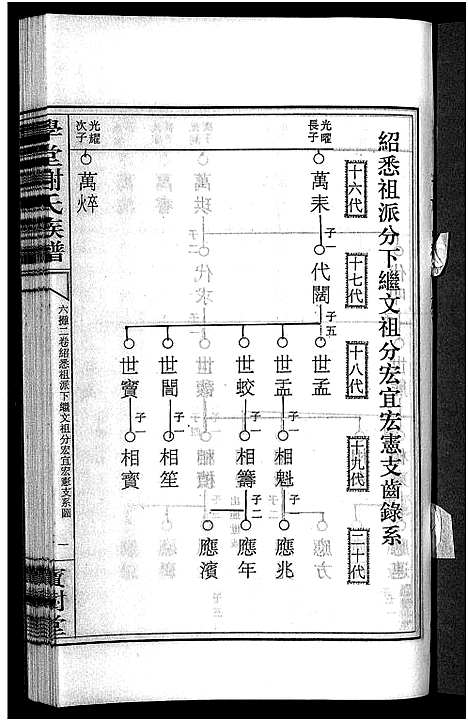 紹悉祖派分下繼文祖分宏宜宏憲支齒錄系
十六代
十七代
十八代
十九代
二十代
光曜長子
萬耒
子一
代闊
子五
世孟
世盂
子一
相魁
子一
應兆
世蛟
子一
相籌
子二
應年
應濱
世誾
子一
相笙
世寶
子一
相寶
光耀次子
萬焠
學堂謝氏族譜
六攤二卷紹悉祖派下繼文祖分宏宜宏憲支系圖
一
寶樹堂